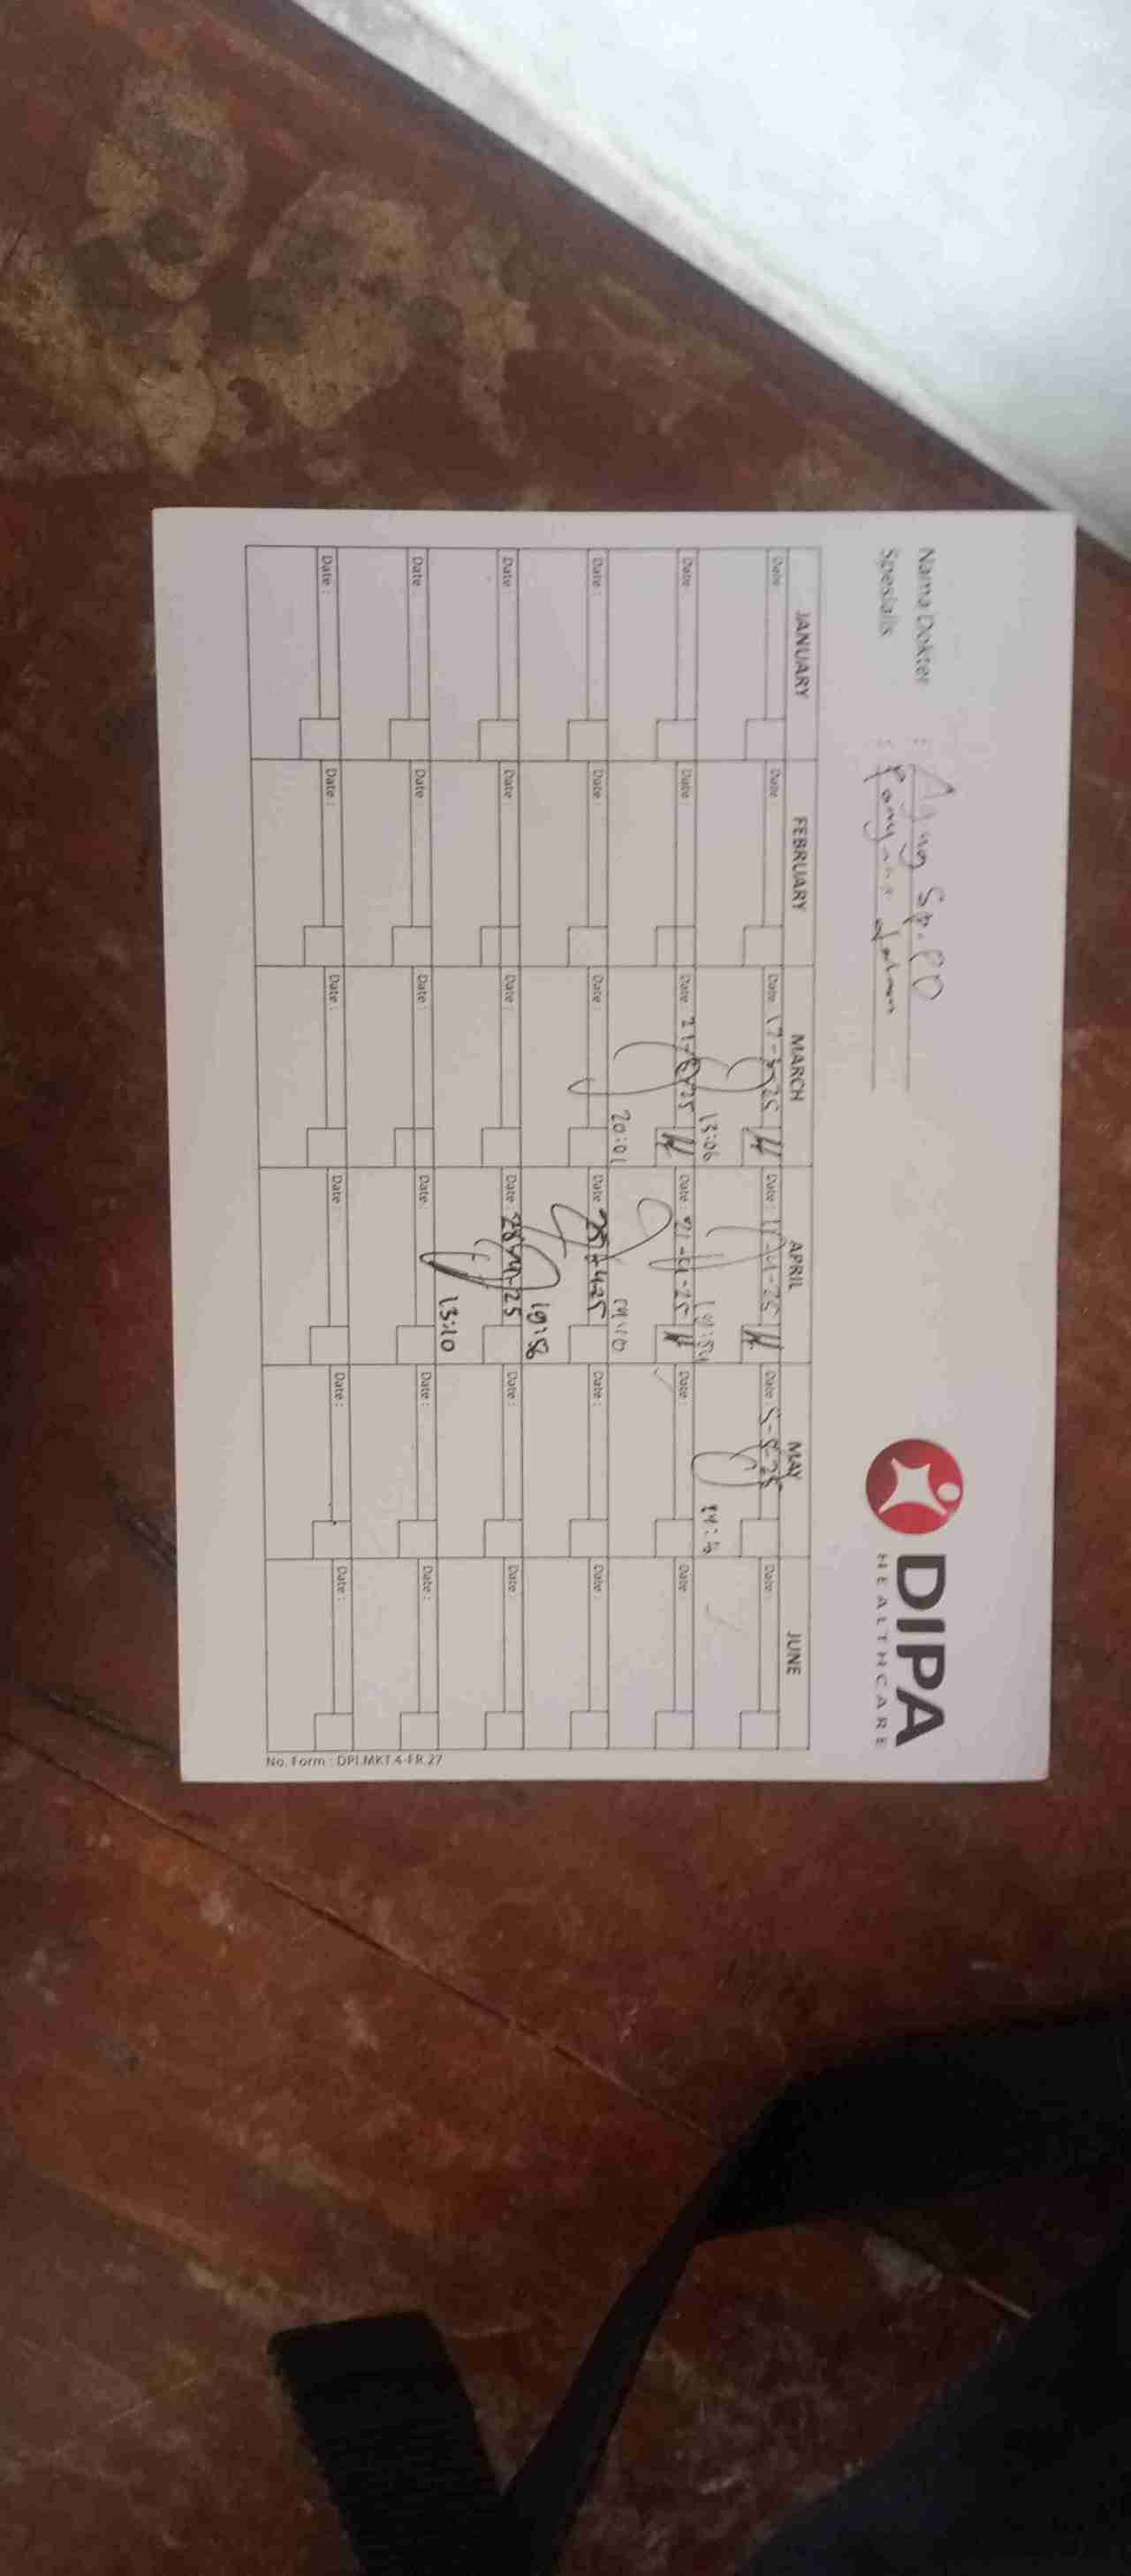 Nama Dokter : Agung Sp.PD
Spesialis :
DIPA
HEALTHCARE
JANUARY FEBRUARY MARCH APRIL MAY JUNE
Date : Date : Date : 17-3-25 Date : Date : 5-5-25 Date :
13:06
Date : Date : Date : 21-3-25 Date : 21-4-25 Date : Date :
20:01
Date : Date : Date : Date : 25-4-25 Date : Date :
19:58
Date : Date : Date : Date : 28-4-25 Date : Date :
13:10
Date : Date : Date : Date : Date : Date :
Date : Date : Date : Date : Date : Date :
No. Form : DPI.MKT.4-FR.27